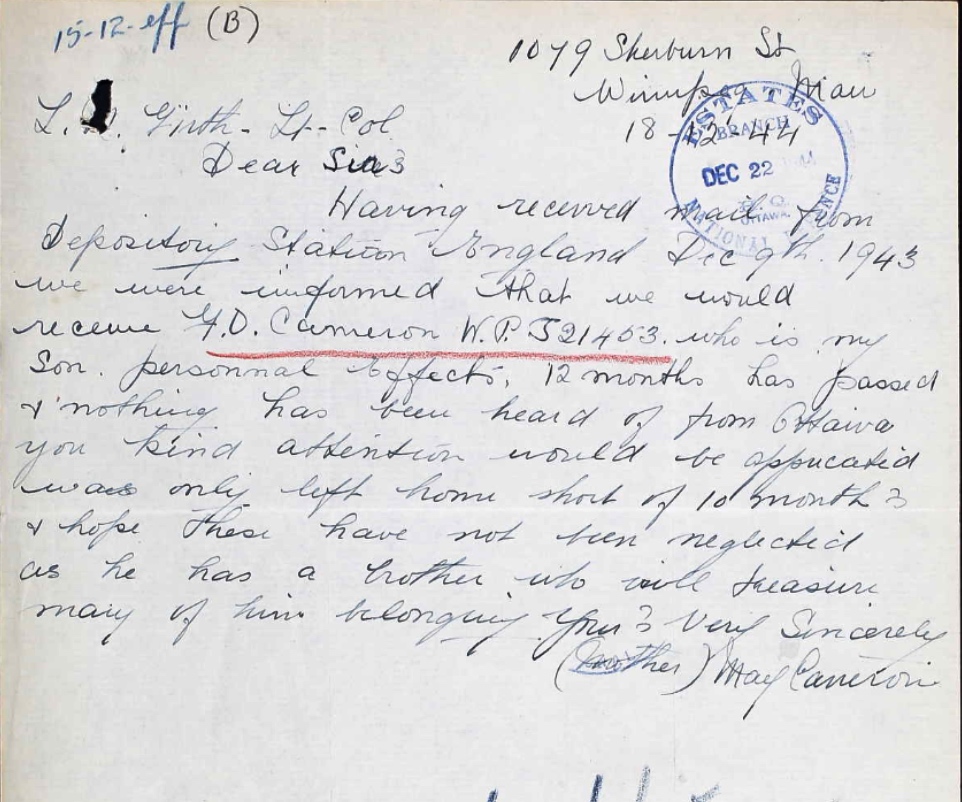 15-12-eff (B)
1079 Sherburn St
Winnipeg Man
18-12-44
ESTATES
BRANCH
DEC 22
OTTAWA.
NATIONAL DEFENCE
L. Firth - Lt-Col
Dear Sir
Having received mail from
Depository Station England Dec 9th. 1943
we were informed that we would
receive G.D. Cameron W.P. J21453. who is my
Son. personnal Effects, 12 months has passed
& nothing has been heard of from Ottawa
you kind attention would be appricated
was only left home short of 10 months
& hope these have not been neglected
as he has a brother who will treasure
many of him belonging Yours Very Sincerely
(mother) May Cameron